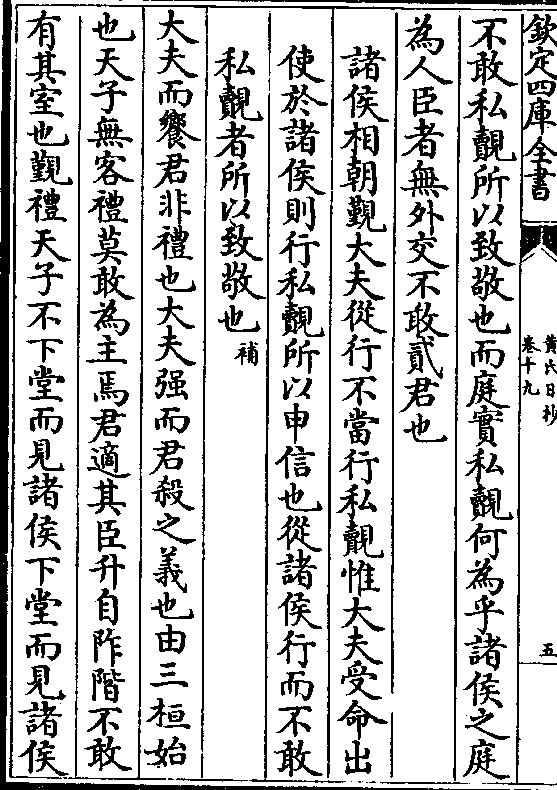 欽定四庫全書
黃氏日抄
卷十九
五
不敢私覿所以致敬也而庭實私覿何為乎諸侯之庭
為人臣者無外交不敢貳君也
諸侯相朝覲大夫從行不當行私覿惟大夫受命出
使於諸侯則行私覿所以申信也從諸侯行而不敢
私覿者所以致敬也補
大夫而饗君非禮也大夫强而君殺之義也由三桓始
也天子無客禮莫敢為主焉君適其臣升自阼階不敢
有其室也覲禮天子不下堂而見諸侯下堂而見諸侯